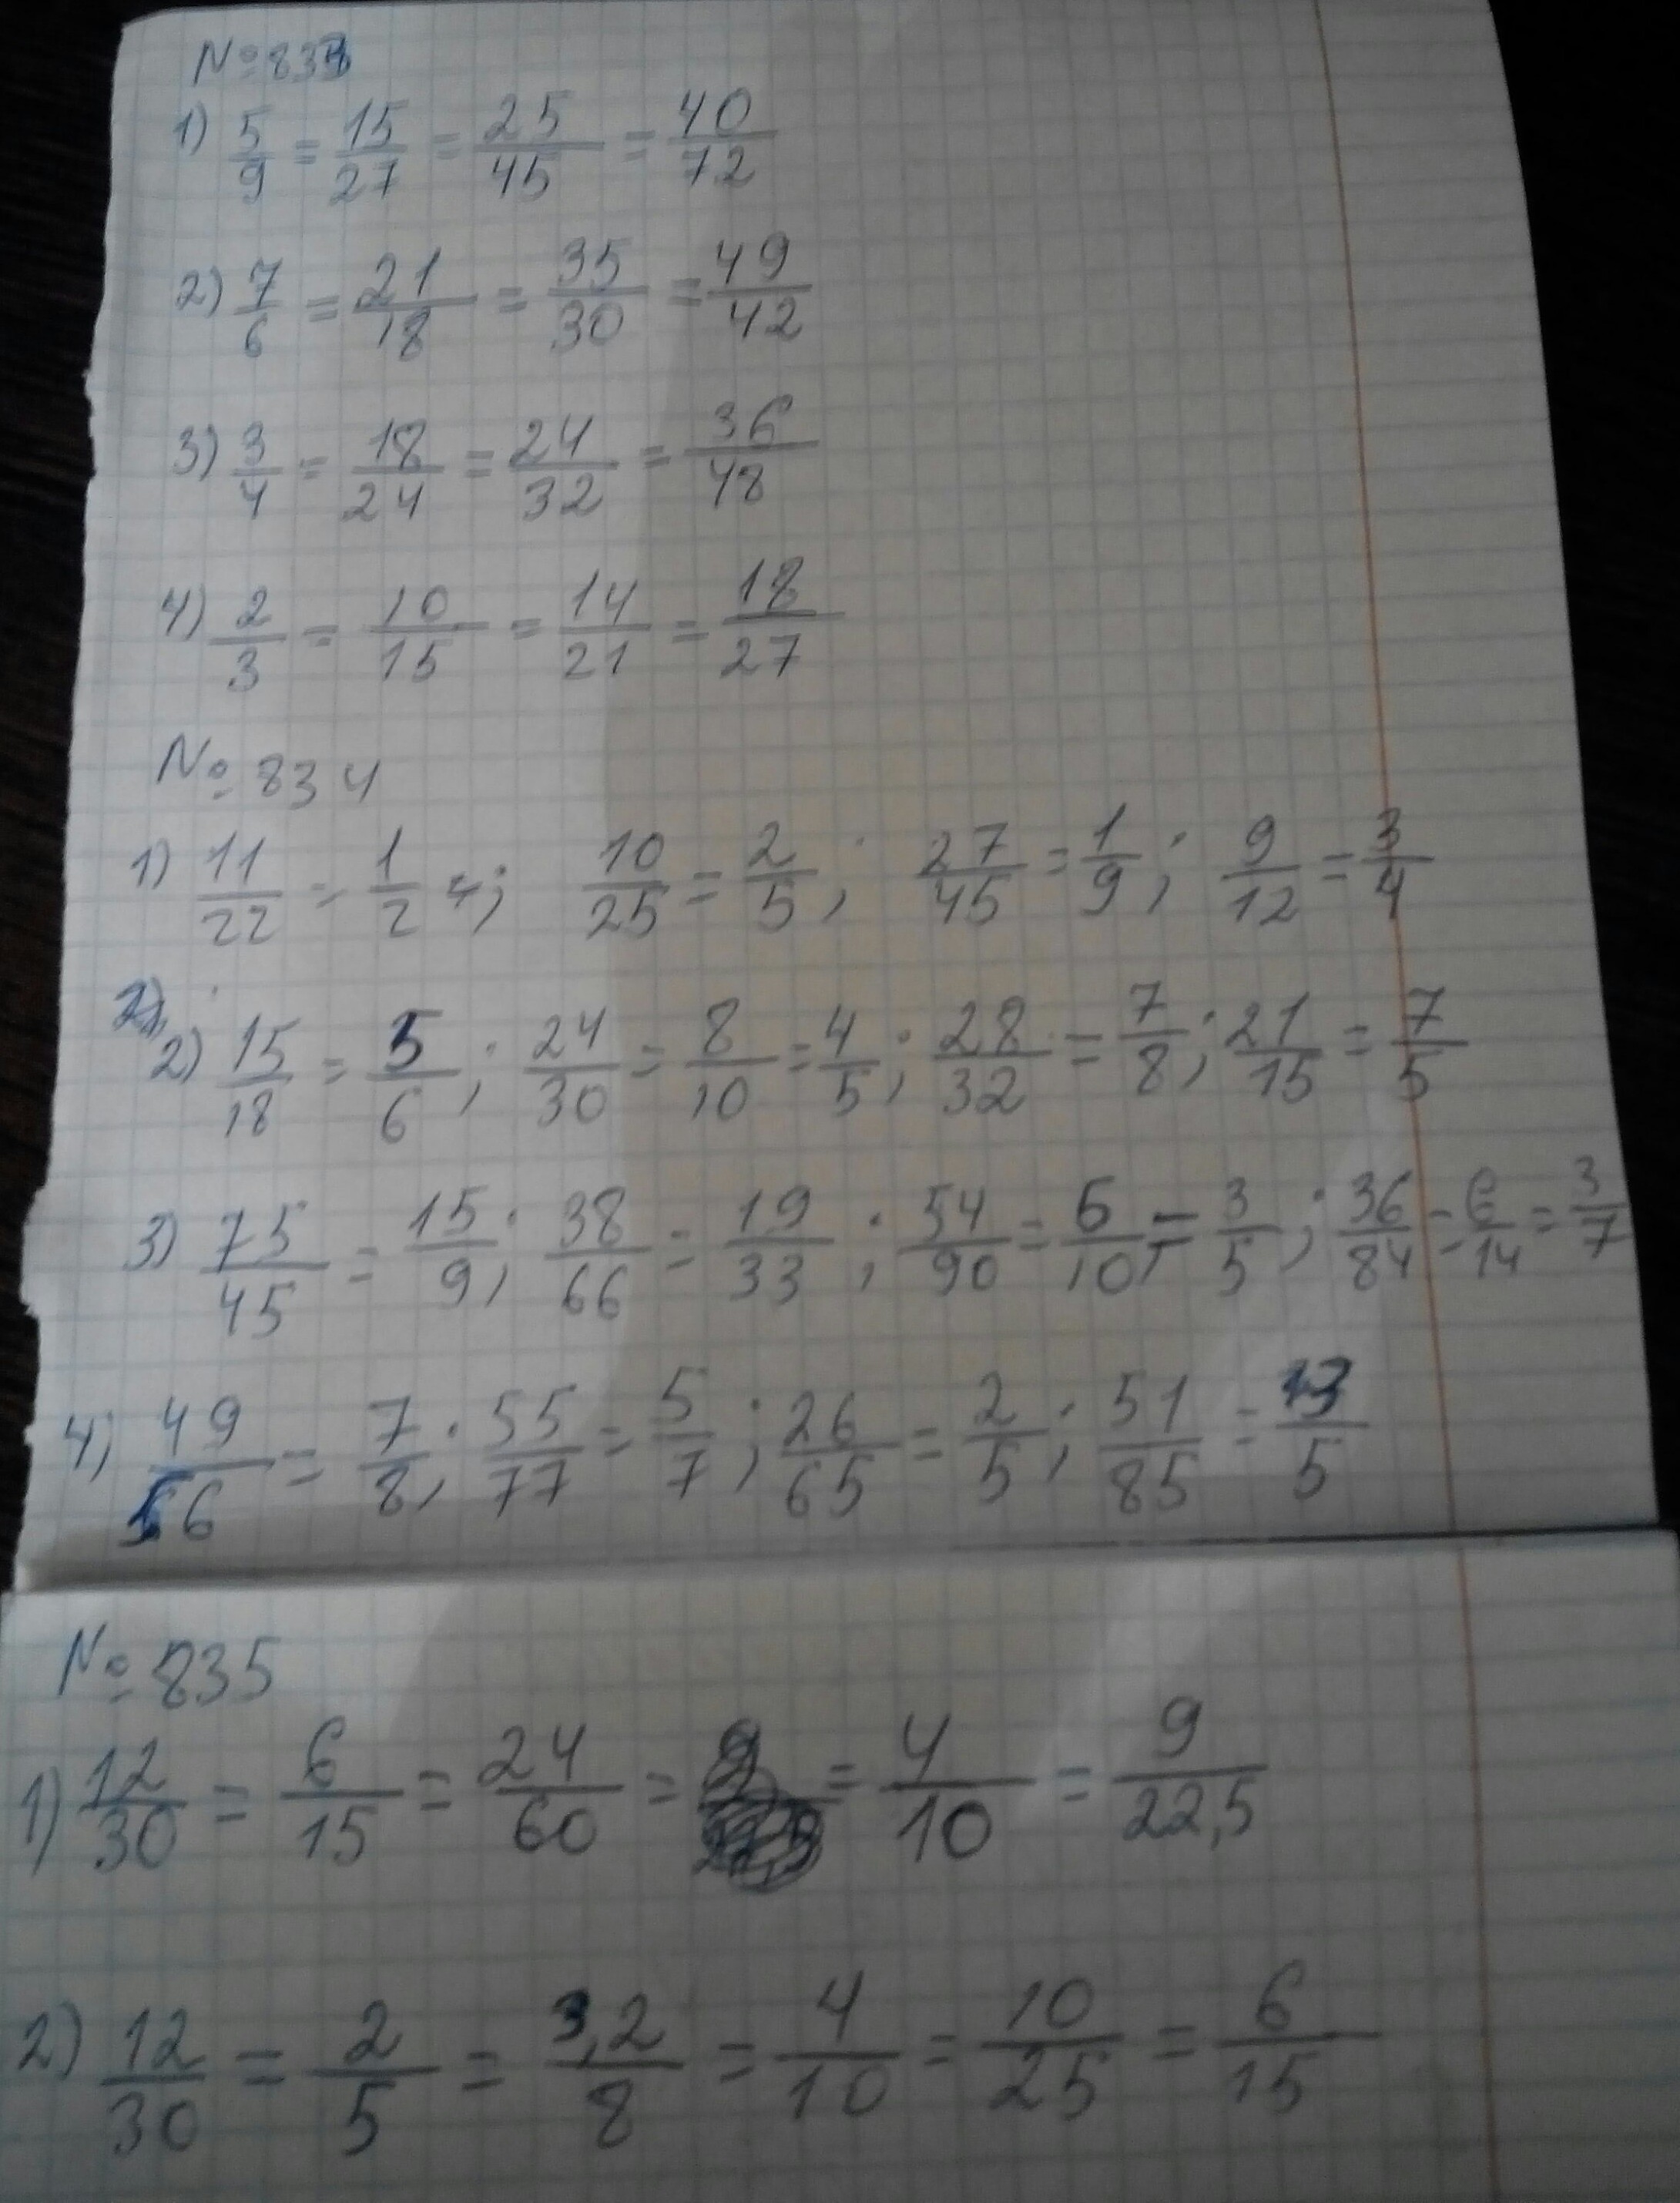 № 833
1) 5/9 = 15/27 = 25/45 = 40/72
2) 7/6 = 21/18 = 35/30 = 49/42
3) 3/4 = 18/24 = 24/32 = 36/48
4) 2/3 = 10/15 = 14/21 = 18/27
№ 834
1) 11/22 = 1/2 ; 10/25 = 2/5 ; 27/45 = 1/9 ; 9/12 = 3/4
2) 15/18 = 5/6 ; 24/30 = 8/10 = 4/5 ; 28/32 = 7/8 ; 21/15 = 7/5
3) 75/45 = 15/9 ; 38/66 = 19/33 ; 54/90 = 6/10 = 3/5 ; 36/84 = 6/14 = 3/7
4) 49/56 = 7/8 ; 55/77 = 5/7 ; 26/65 = 2/5 ; 51/85 = /5
№ 835
1) 12/30 = 6/15 = 24/60 = = 4/10 = 9/22,5
2) 12/30 = 2/5 = 3,2/8 = 4/10 = 10/25 = 6/15